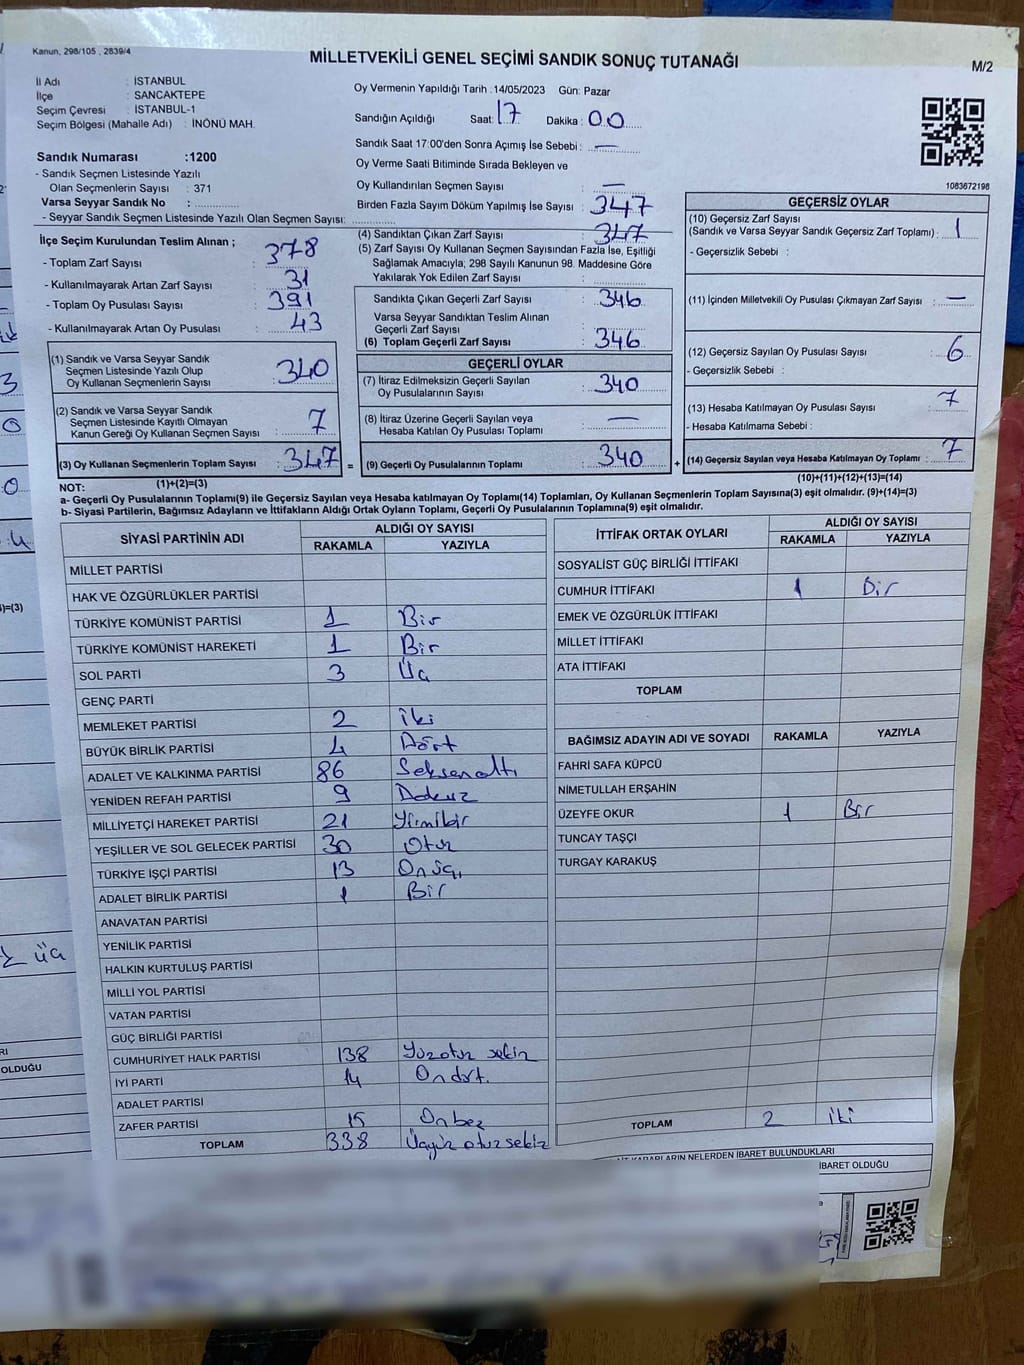 Kanun, 298/105 , 2839/4
MİLLETVEKİLİ GENEL SEÇİMİ SANDIK SONUÇ TUTANAĞI
M/2
İl Adı : İSTANBUL
İlçe : SANCAKTEPE
Seçim Çevresi : İSTANBUL-1
Seçim Bölgesi (Mahalle Adı) : İNÖNÜ MAH.
Sandık Numarası :1200
- Sandık Seçmen Listesinde Yazılı
Olan Seçmenlerin Sayısı : 371
Varsa Seyyar Sandık No :
- Seyyar Sandık Seçmen Listesinde Yazılı Olan Seçmen Sayısı:
Oy Vermenin Yapıldığı Tarih :14/05/2023 Gün: Pazar
Sandığın Açıldığı Saat: 17 Dakika : 00
Sandık Saat 17:00'den Sonra Açımış İse Sebebi : —
Oy Verme Saati Bitiminde Sırada Bekleyen ve
Oy Kullandırılan Seçmen Sayısı : —
Birden Fazla Sayım Döküm Yapılmış İse Sayısı : 347
1083672198
İlçe Seçim Kurulundan Teslim Alınan ;
- Toplam Zarf Sayısı : 378
- Kullanılmayarak Artan Zarf Sayısı : 31
- Toplam Oy Pusulası Sayısı : 391
- Kullanılmayarak Artan Oy Pusulası : 43
(1) Sandık ve Varsa Seyyar Sandık
Seçmen Listesinde Yazılı Olup
Oy Kullanan Seçmenlerin Sayısı : 340
(2) Sandık ve Varsa Seyyar Sandık
Seçmen Listesinde Kayıtlı Olmayan
Kanun Gereği Oy Kullanan Seçmen Sayısı : 7
(3) Oy Kullanan Seçmenlerin Toplam Sayısı : 347 =
(1)+(2)=(3)
(4) Sandıktan Çıkan Zarf Sayısı : 347
(5) Zarf Sayısı Oy Kullanan Seçmen Sayısından Fazla İse, Eşitliği
Sağlamak Amacıyla, 298 Sayılı Kanunun 98. Maddesine Göre
Yakılarak Yok Edilen Zarf Sayısı :
Sandıkta Çıkan Geçerli Zarf Sayısı : 346
Varsa Seyyar Sandıktan Teslim Alınan
Geçerli Zarf Sayısı :
(6) Toplam Geçerli Zarf Sayısı : 346
GEÇERLİ OYLAR
(7) İtiraz Edilmeksizin Geçerli Sayılan
Oy Pusulalarının Sayısı : 340
(8) İtiraz Üzerine Geçerli Sayılan veya
Hesaba Katılan Oy Pusulası Toplamı : —
(9) Geçerli Oy Pusulalarının Toplamı : 340 +
GEÇERSİZ OYLAR
(10) Geçersiz Zarf Sayısı
(Sandık ve Varsa Seyyar Sandık Geçersiz Zarf Toplamı) : 1
- Geçersizlik Sebebi :
(11) İçinden Milletvekili Oy Pusulası Çıkmayan Zarf Sayısı : —
(12) Geçersiz Sayılan Oy Pusulası Sayısı : 6
- Geçersizlik Sebebi :
(13) Hesaba Katılmayan Oy Pusulası Sayısı : 7
- Hesaba Katılmama Sebebi :
(14) Geçersiz Sayılan veya Hesaba Katılmayan Oy Toplamı : 7
(10)+(11)+(12)+(13)=(14)
NOT:
a- Geçerli Oy Pusulalarının Toplamı(9) ile Geçersiz Sayılan veya Hesaba katılmayan Oy Toplamı(14) Toplamları, Oy Kullanan Seçmenlerin Toplam Sayısına(3) eşit olmalıdır. (9)+(14)=(3)
b- Siyasi Partilerin, Bağımsız Adayların ve İttifakların Aldığı Ortak Oyların Toplamı, Geçerli Oy Pusulalarının Toplamına(9) eşit olmalıdır.
SİYASİ PARTİNİN ADI ALDIĞI OY SAYISI
RAKAMLA YAZIYLA
MİLLET PARTİSİ
HAK VE ÖZGÜRLÜKLER PARTİSİ
TÜRKİYE KOMÜNİST PARTİSİ 1 Bir
TÜRKİYE KOMÜNİST HAREKETİ 1 Bir
SOL PARTİ 3 Üç
GENÇ PARTİ
MEMLEKET PARTİSİ 2 İki
BÜYÜK BİRLİK PARTİSİ 4 Dört
ADALET VE KALKINMA PARTİSİ 86 Seksenaltı
YENİDEN REFAH PARTİSİ 9 Dokuz
MİLLİYETÇİ HAREKET PARTİSİ 21 Yirmibir
YEŞİLLER VE SOL GELECEK PARTİSİ 30 Otuz
TÜRKİYE İŞÇİ PARTİSİ 13 Onüç
ADALET BİRLİK PARTİSİ 1 Bir
ANAVATAN PARTİSİ
YENİLİK PARTİSİ
HALKIN KURTULUŞ PARTİSİ
MİLLİ YOL PARTİSİ
VATAN PARTİSİ
GÜÇ BİRLİĞİ PARTİSİ
CUMHURİYET HALK PARTİSİ 138 Yüzotuz sekiz
İYİ PARTİ 14 Ondört.
ADALET PARTİSİ
ZAFER PARTİSİ 15 Onbeş
TOPLAM 338 Üçyüz otuzsekiz
İTTİFAK ORTAK OYLARI ALDIĞI OY SAYISI
RAKAMLA YAZIYLA
SOSYALİST GÜÇ BİRLİĞİ İTTİFAKI
CUMHUR İTTİFAKI 1 Bir
EMEK VE ÖZGÜRLÜK İTTİFAKI
MİLLET İTTİFAKI
ATA İTTİFAKI
TOPLAM
BAĞIMSIZ ADAYIN ADI VE SOYADI RAKAMLA YAZIYLA
FAHRİ SAFA KÜPCÜ
NİMETULLAH ERŞAHİN
ÜZEYFE OKUR 1 Bir
TUNCAY TAŞÇI
TURGAY KARAKUŞ
TOPLAM 2 İki
KARARLARIN NELERDEN İBARET BULUNDUKLARI
İBARET OLDUĞU
)=(3)
üç
OLDUĞU